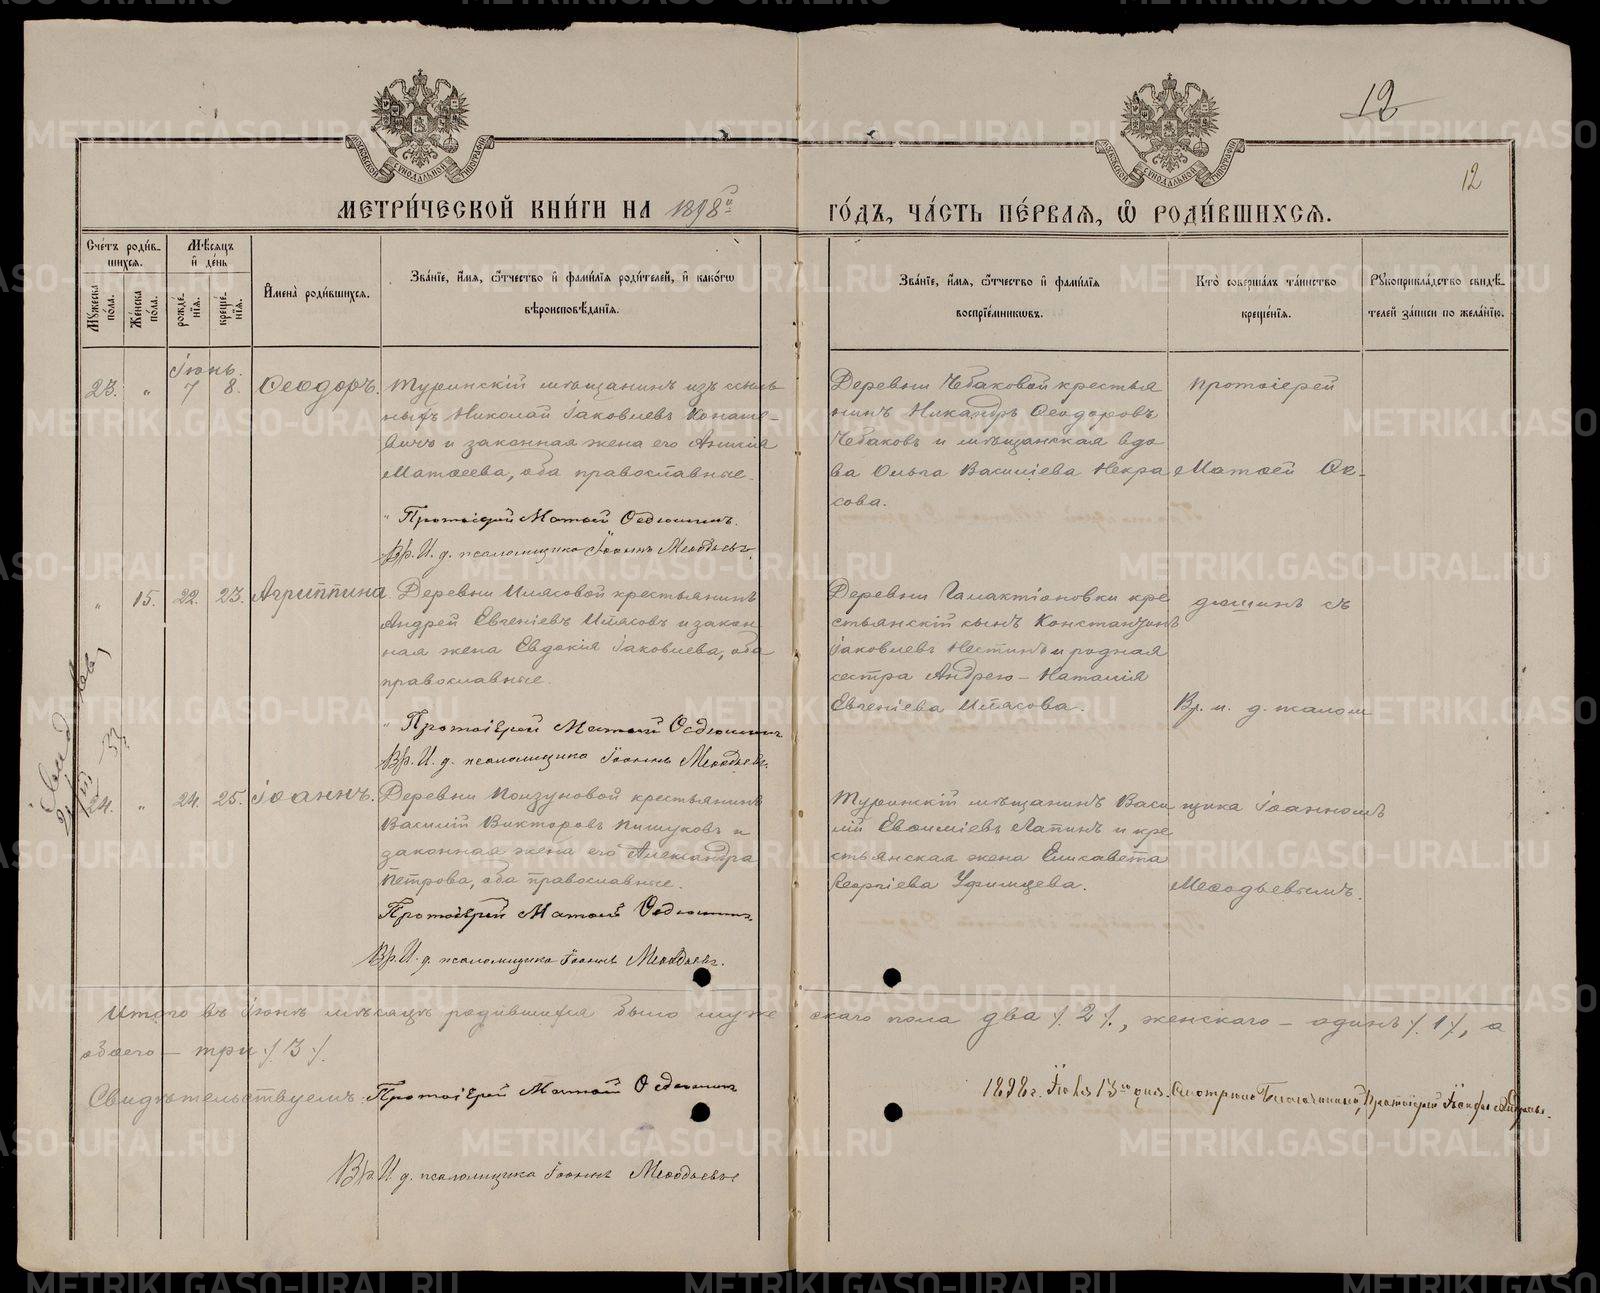 12
12
МОСКОВСКОЙ СѴНОДАЛЬНОЙ ТИПОГРАФІИ
МОСКОВСКОЙ СѴНОДАЛЬНОЙ ТИПОГРАФІИ
МЕТРИ́ЧЕСКОЙ КНИ́ГИ НА 1898й
ГО́ДЪ, ЧА́СТЬ ПЕ́РВАЯ, Ѡ҆ РОДИ́ВШИХСЯ.
Сче́тъ роди́в-
шихся.
Мѣ́сяцъ
и҆ де́нь
Мꙋ́жеска
по́ла.
Же́нска
по́ла.
рожде́-
нія.
креще́-
нія.
И҆мена̀ роди́вшихся.
Зва́ніе, и҆́мя, ѻ҆́тчество и҆ фами́лія роди́телей, и҆ како́гѡ
вѣроисповѣ́данія.
Зва́ніе, и҆́мя, ѻ҆́тчество и҆ фами́лія
воспріе́мниковъ.
Кто̀ соверша́лъ та́инство
креще́нія.
Рꙋкоприкла́дство свидѣ́-
телей за́писи по жела́нію.
Іюнь.
23. „ 7 8. Ѳеодоръ.
Туринскій мѣщанинъ изъ ссыль
ныхъ Николай Іаковлевъ Конаше-
вичъ и законная жена его Анисія
Матѳеева, оба православные.
„ Протоіерей Матѳей Ѳедюшинъ.
Вр. И. д. псаломщика Іоаннъ Меѳодьевъ.
Деревни Чебаковой крестья
нинъ Никандръ Ѳеодоровъ
Чебаковъ и мѣщанская вдо
ва Ольга Василіева Некра
сова.
Протоіерей
Матѳей Ѳе-
„ 15. 22. 23. Агриппина
Деревни Илясовой крестьянинъ
Андрей Евгеніевъ Илясовъ и закон
ная жена Евдокія Іаковлева, оба
православные.
„ Протоіерей Матѳей Ѳедюшинъ
Вр. И. д. псаломщика Іоаннъ Меѳодьевъ.
Деревни Галактіоновки кре
стьянскій сынъ Константинъ
Іаковлевъ Нестинъ и родная
сестра Андрею - Наталія
Евгеніева Илясова.
дюшинъ съ
Вр. и. д. псалом
24. „ 24. 25. Іоаннъ.
Деревни Ползуновой крестьянинъ
Василій Викторовъ Пишуковъ и
законная жена его Александра
Петрова, оба православные.
Протоіерей Матѳей Ѳедюшинъ
Вр. И. д. псаломщика Іоаннъ Меѳодьевъ.
Туринскій мѣщанинъ Васи
лій Евѳиміевъ Лапинъ и кре
стьянская жена Елисавета
Георгіева Уфимцева.
щика Іоанномъ
Меѳодьевымъ.
Итого въ Іюнѣ мѣсяцѣ родившихся было муже
скаго пола два /.2/., женскаго - одинъ /.1/., а
обоего - три /.3/.
Свидѣтельствуемъ: Протоіерей Матѳей Ѳедюшинъ
Вр. И. д. псаломщика Іоаннъ Меѳодьевъ
1898 г. Іюля 13го дня. Смотрѣлъ Благочинный, Протоіерей
METRIKI.GASO-URAL.RU